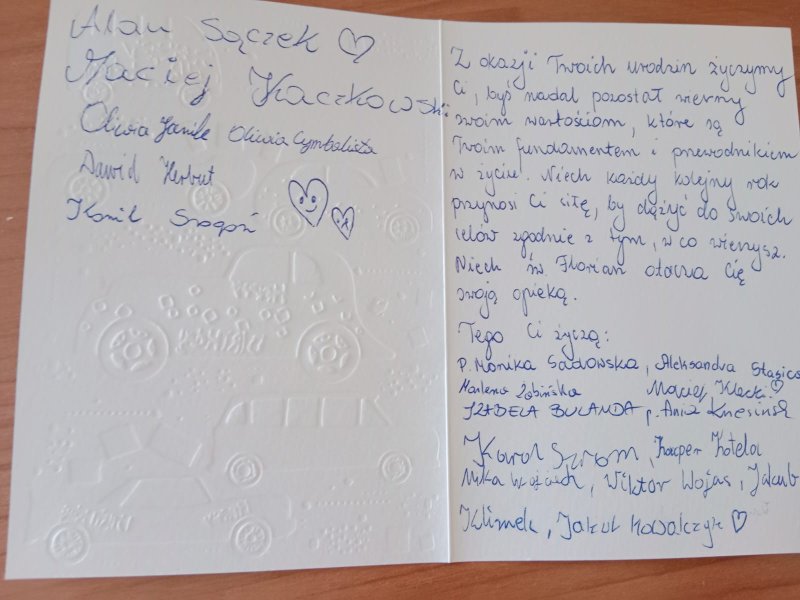 Alan Sączek
Maciej Kaczkowski
Oliwia Janik Oliwia Cymbalista
Dawid Herbut
Kamil
Z okazji Twoich urodzin życzymy
Ci, byś nadal pozostał wierny
swoim wartościom, które są
Twoim fundamentem i przewodnikiem
w życiu. Niech każdy kolejny rok
przynosi Ci siłę, by dążyć do swoich
celów zgodnie z tym, w co wierzysz.
Niech św. Florian otacza Cię
swoją opieką.
Tego Ci życzą:
P. Monika Sadowska, Aleksandra
Marlena Żabińska Maciej Klecki
IZABELA BULANDA p. Ania
Karol Szrom, Kacper Kotela
Wiktor Wojas, Jakub
Klimek, Jakub Kowalczyk